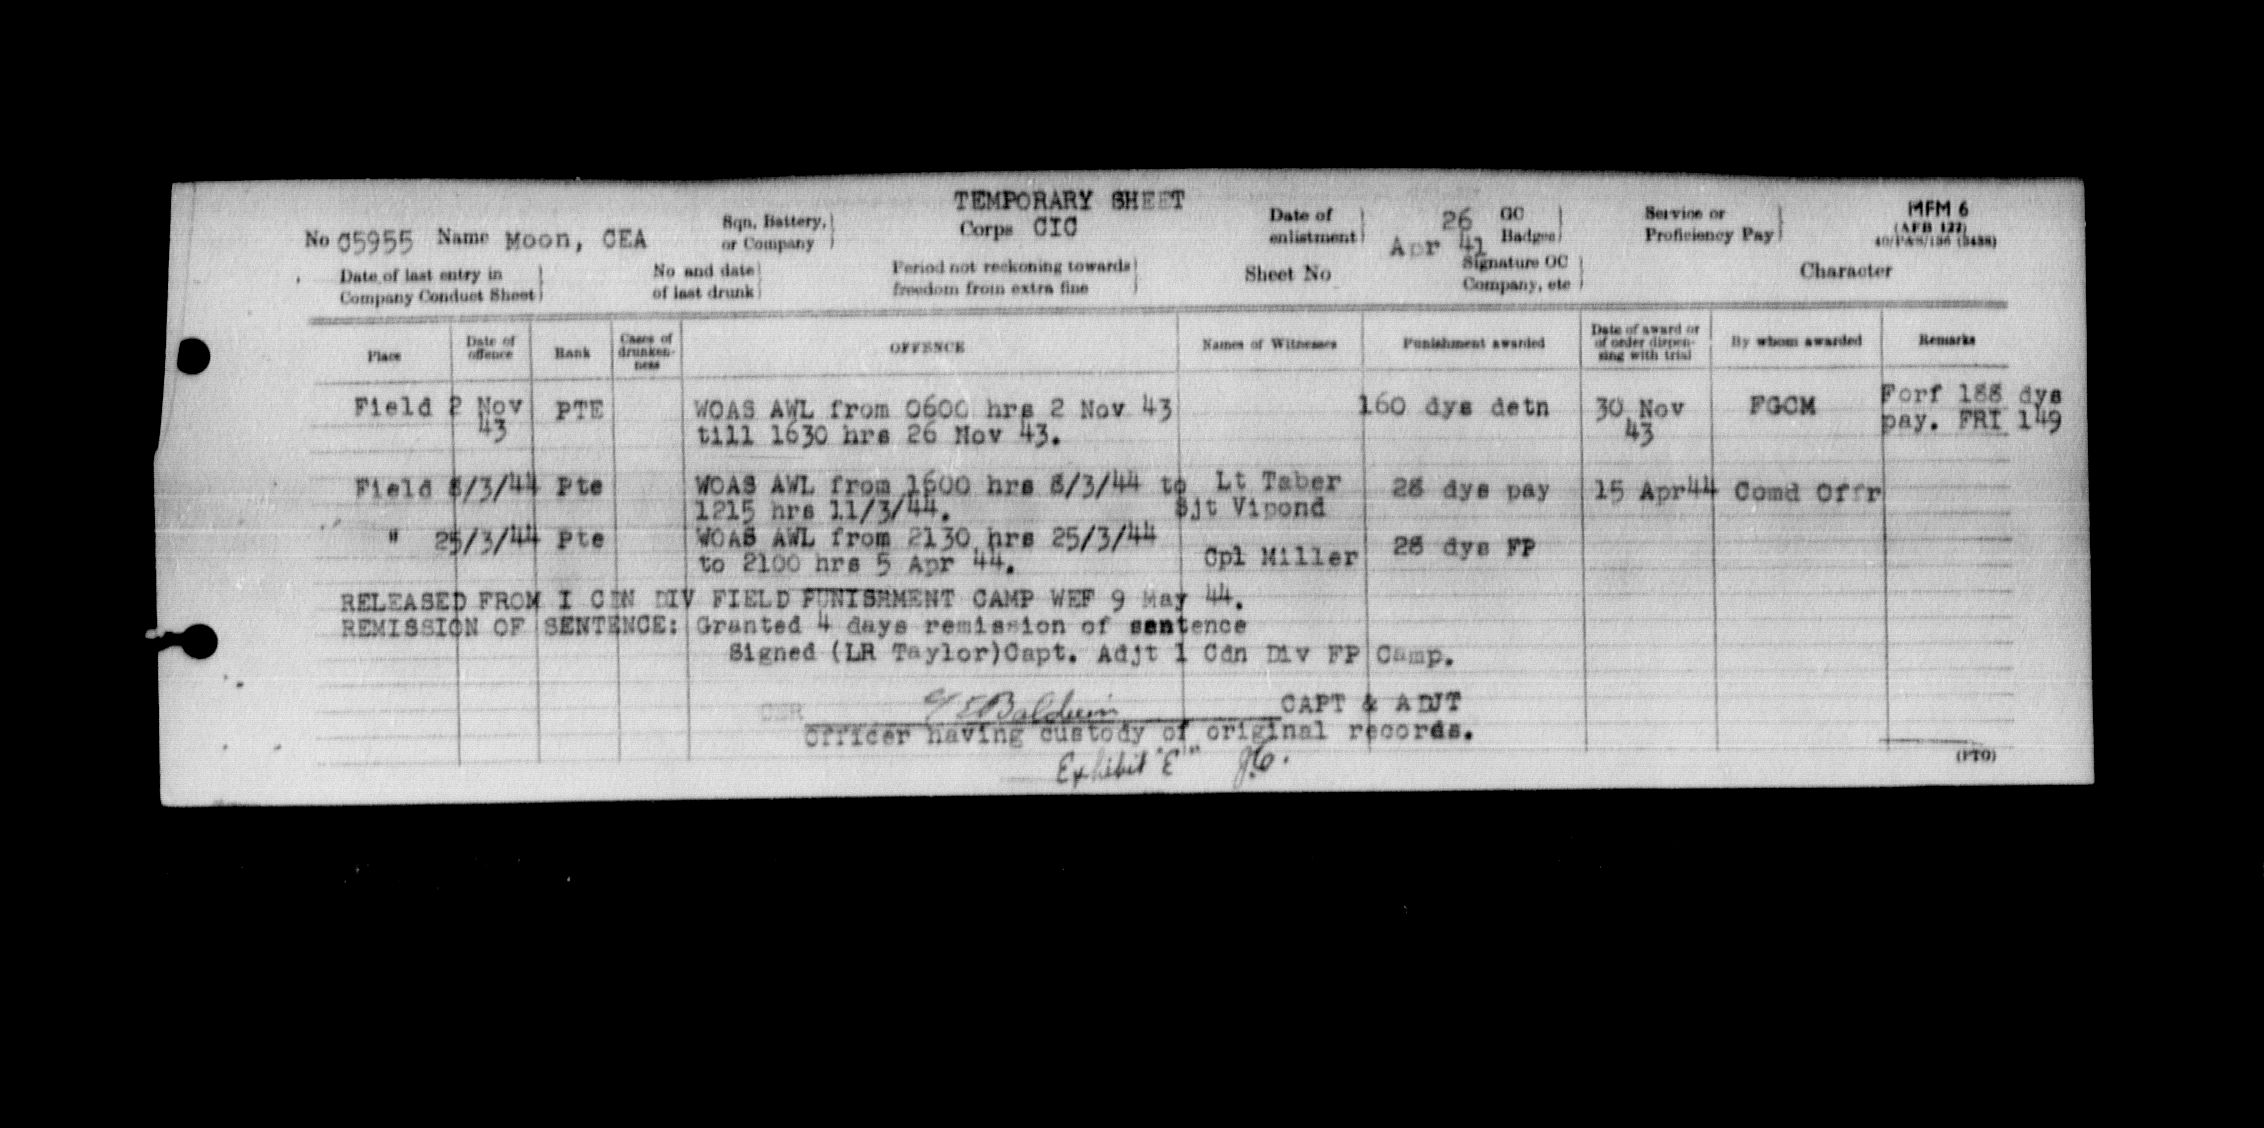 TEMPORARY SHEET
MFM 6
(AFB 122)
No C5955 Name Moon, CEA Sqn, Battery, or Company Corps CIC Date of enlistment 26 Apr 41 GC Badges Service or Proficiency Pay
Date of last entry in Company Conduct Sheet No and date of last drunk Period not reckoning towards freedom from extra fine Sheet No Signature OC Company, etc Character
Place Date of offence Rank Cases of drunken-ness OFFENCE Names of Witnesses Punishment awarded Date of award or of order dispen-sing with trial By whom awarded Remarks
Field 2 Nov 43 PTE WOAS AWL from 0600 hrs 2 Nov 43 160 dys detn 30 Nov 43 FGCM Forf 188 dys
till 1630 hrs 26 Nov 43. pay. FRI 149
Field 8/3/44 Pte WOAS AWL from 1600 hrs 8/3/44 to Lt Taber 28 dys pay 15 Apr44 Comd Offr
1215 hrs 11/3/44. Sjt Vipond
" 25/3/44 Pte WOAS AWL from 2130 hrs 25/3/44 Cpl Miller 28 dys FP
to 2100 hrs 5 Apr 44.
RELEASED FROM I CDN DIV FIELD PUNISHMENT CAMP WEF 9 May 44.
REMISSION OF SENTENCE: Granted 4 days remission of sentence
Signed (LR Taylor)Capt. Adjt 1 Cdn Div FP Camp.
Baldwin CAPT & ADJT
Officer having custody of original records.
Exhibit "E" J.C.
(PTO)